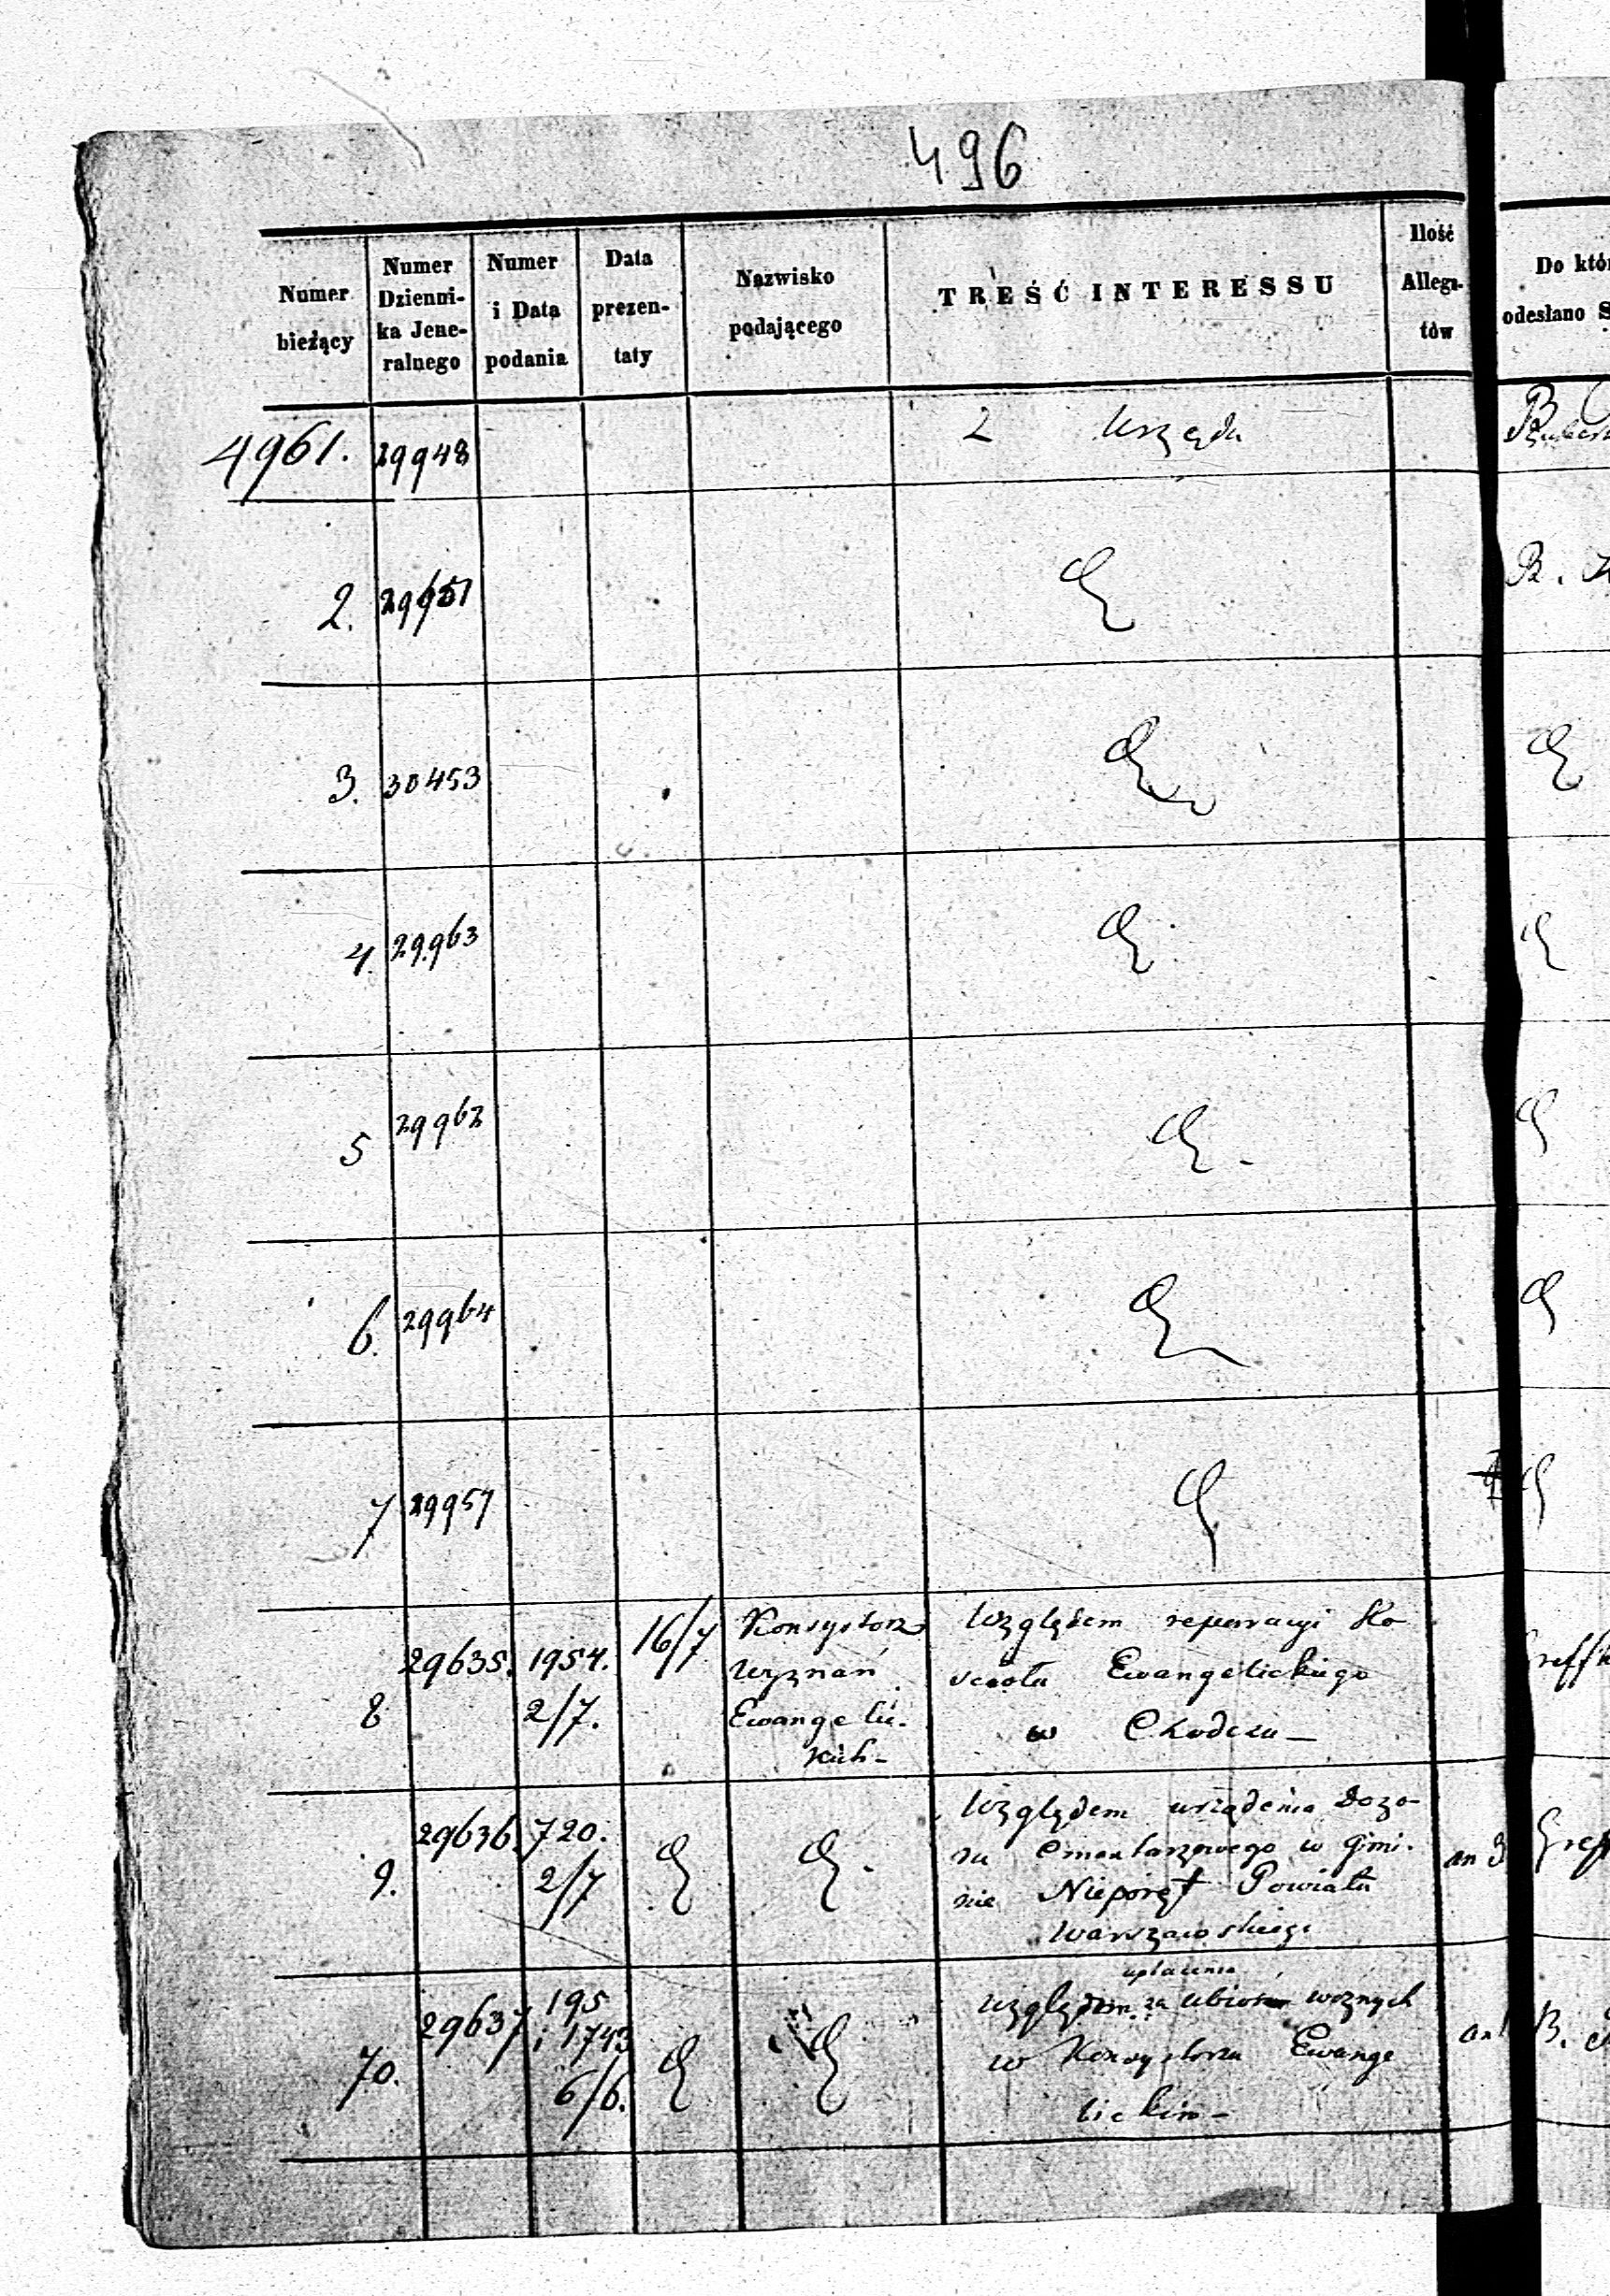 496
Numer bieżący
Numer Dzienni- ka Jene- ralnego
Numer i Data podania
Data prezen- taty
Nazwisko podającego
TREŚĆ INTERESSU
Ilość Allega- tów
Do któr
odesłano S
4961. 29948 2 Urzędu
2. B.
3. 30453
4. 29963
5 29962
6. 29964
7 29957
8 29635. 1954. 2/7. 16/7
Konsystorz
wyznań
Ewangelic-
kich -
Względem reperacyi Ko
scioła Ewangelickiego
w Chodczu -
Greff
9. 29636. 720. 2/7
Względem urządzenia Dozo-
ru Cmentarzowego w Gmi-
nie Nieporęt Powiatu
Warszawskiego
an 3 Greff
70. 29637 195 i 1743 6/6.
upłacenia
Względem za ubiór woznych
w Konsystorzu Ewange
lickim -
an 1 B.